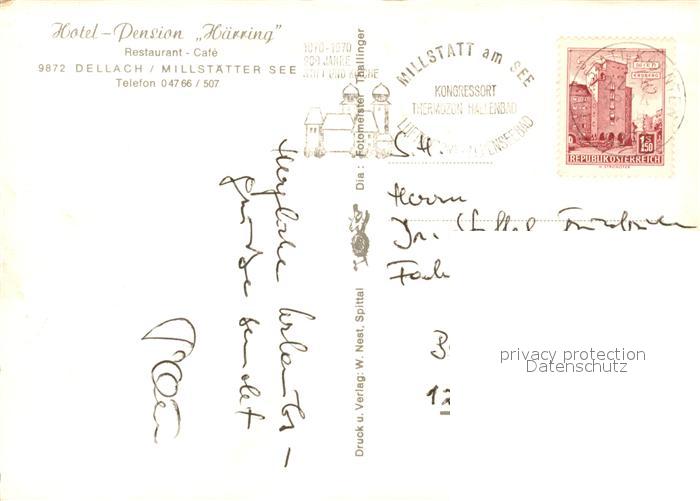 Hotel-Pension „Härring"
Restaurant - Café
9872 DELLACH / MILLSTÄTTER SEE
Telefon 04766 / 507
1070-1970
900 JAHRE
STIFT UND KIRCHE
MILLSTATT am SEE
KONGRESSORT
THERMOZON HALLENBAD
1.50
REPUBLIK ÖSTERREICH
Dia: Fotomeister Thallinger
Druck u. Verlag: W. Nest, Spittal
Herzliche Urlaubs-
grüsse sendet
S.H.
Herrn
12
privacy protection
Datenschutz